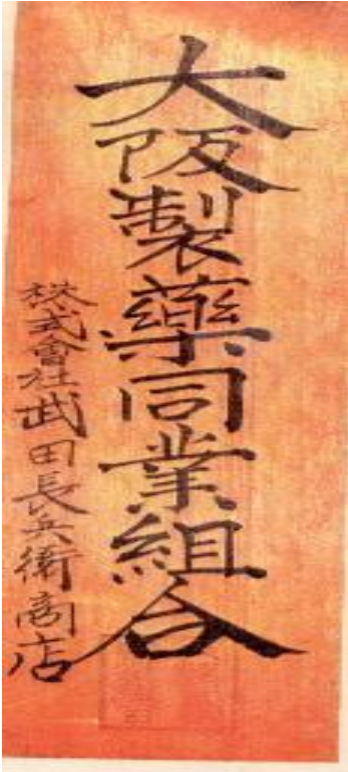 大阪製藥同業組合
株式會社武田長兵衛商店